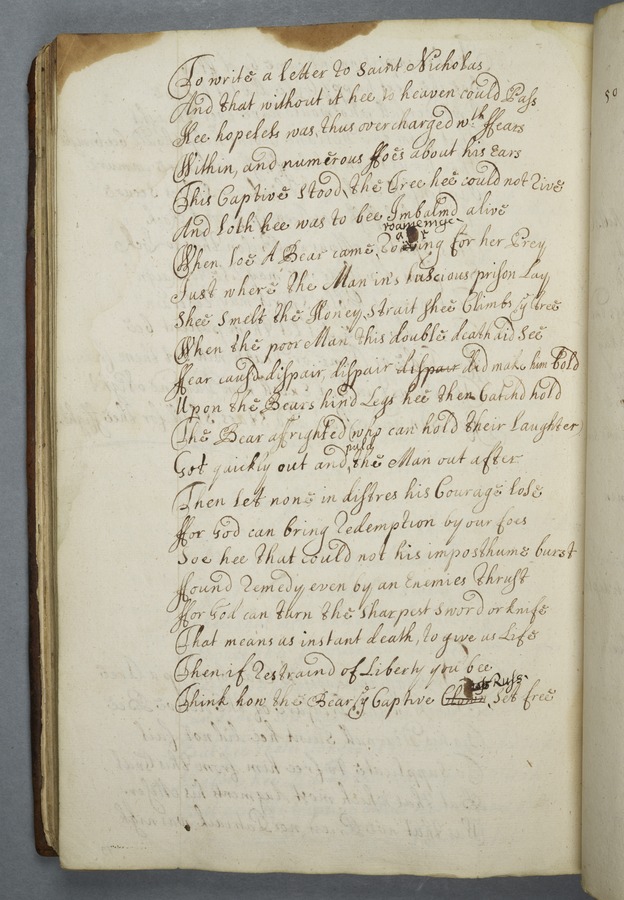 To write a letter to Saint Nicholas
And that without it hee to heaven could Pass
Hee hopeless was, thus overcharged wth ffears
Within, and numerous ffoes about his ears
This Captive stood, the Tree hee could not Rive
And loth hee was to bee Imbalmd alive
roameinge
When loe A Bear came for her Prey
Just where the Man in's luscious prison Lay
Shee smelt the Honey, strait shee Climbs ye tree
When the poor Man this double death did see
ffear causd dispair, dispair dispair did make him bold
Upon the Bears hind Legs hee then Catchd hold
The Bear affrighted (who can hold their laughter)
puld
Got quickly out and the Man out after
Then let none in distres his Courage lose
ffor God can bring Redemption by our foes
Soe hee that could not his imposthume burst
ffound Remedy even by an Enemies thrust
ffor God can turn the sharpest sword or knife
That means us instant death, to give us Life
Then if Restraind of Liberty you bee
Russ
Think how the Bear ye Captive Clown set free
50